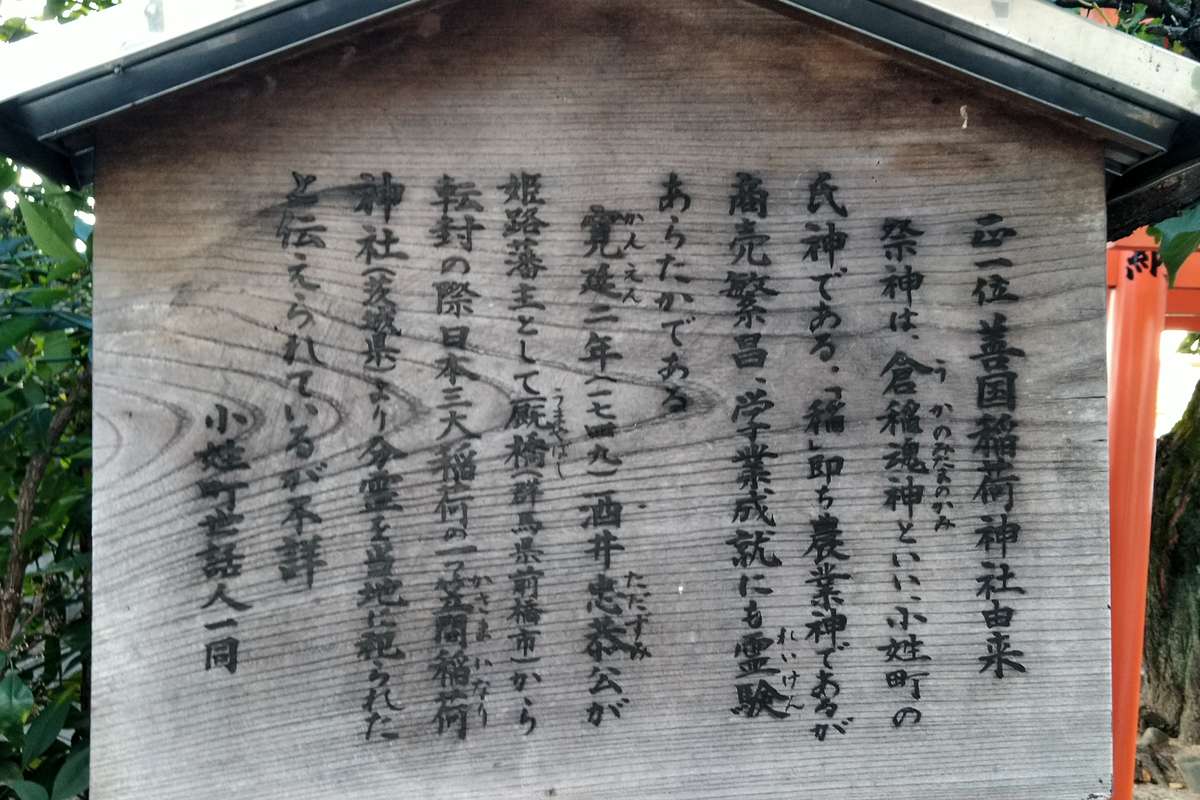 正一位 善国稲荷神社由来
祭神は、倉稲魂神といい小姓町の
うかのみたまのかみ
氏神である。「稲」即ち農業神であるが
商売繁昌、学業成就にも霊験
れいけん
あらたかである
寛延二年(一七四九)酒井忠恭公が
かんえん
ただずみ
姫路藩主として厩橋(群馬県前橋市)から
うまやばし
転封の際日本三大稲荷の一つ笠間稲荷
かさま いなり
神社(茨城県)より分霊を当地に祀られた
と伝えられているが不詳
小姓町世話人一同